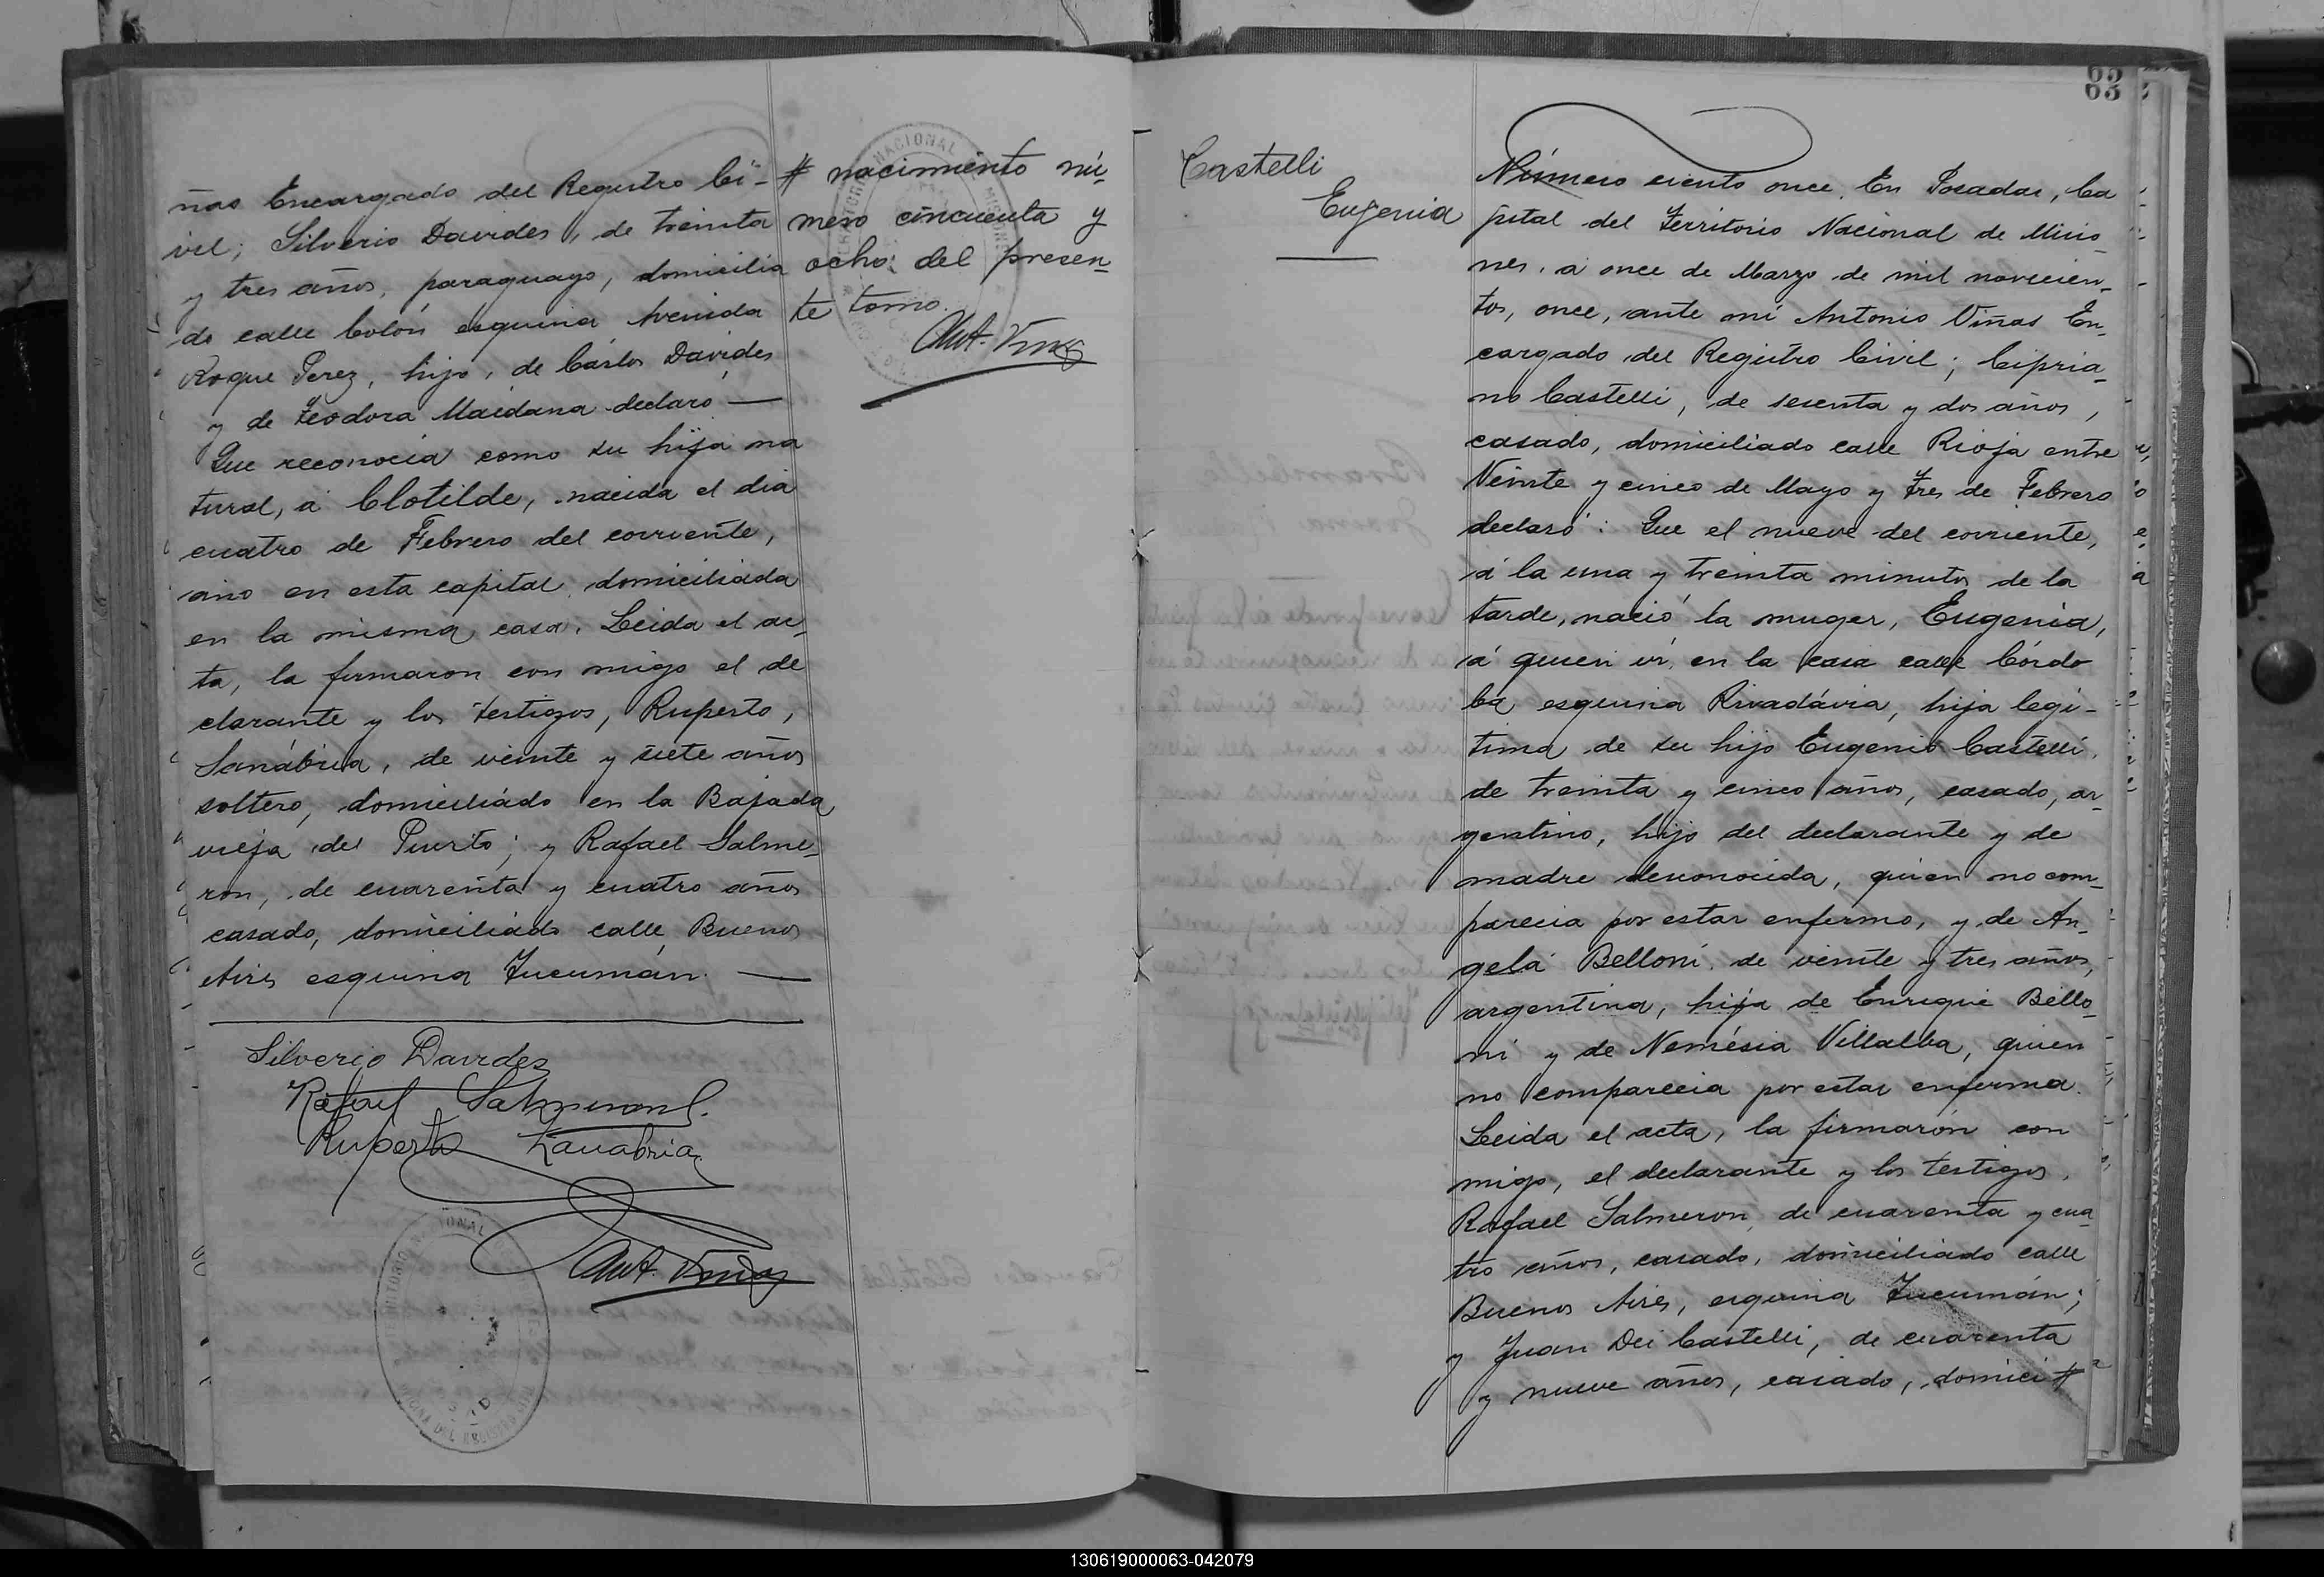 ñas Encargado del Registro Ci-
vil; Silverio Davides, de treinta
y tres años, paraguayo, domicilia
do calle Colón esquina Avenida
Roque Perez, hijo, de Cárlos Davides
y de Teodora Maidana declaró —
Que reconocia como su hija na
tural, á Clotilde, nacida el dia
cuatro de Febrero del corriente,
año en esta capital domiciliada
en la misma casa. Leida el ac-
ta, la firmaron con migo el de
clarante y los testigos, Ruperto,
Sanábria, de veinte y siete años
soltero, domiciliado en la Bajada
vieja del Puerto; y Rafael Salme-
ron, de cuarenta y cuatro años
casado, domiciliado calle Buenos
Aires esquina Tucumán. —
Silverio Davides
Rafael Salmeron
Ruperto Zanabria
Ant. Viñas
# nacimiento nú-
mero cincuenta y
ocho del presen-
te tomo.
Ant. Viñas
63
Castelli
Eugenia
Número ciento once. En Posadas, Ca
pital del Territorio Nacional de Misio
nes, á once de Marzo de mil novecien-
tos, once, ante mí Antonio Viñas En-
cargado del Registro Civil; Cipria-
no Castelli, de sesenta y dos años,
casado, domiciliado calle Rioja entre
Veinte y cinco de Mayo y Tres de Febrero
declaró: Que el nueve del corriente,
á la una y treinta minutos de la
tarde, nació la muger, Eugenia,
á quien ví, en la casa calle Córdo
ba esquina Rivadávia, hija legí-
tima de su hijo Eugenio Castelli,
de treinta y cinco años, casado, ar-
gentino, hijo del declarante y de
madre desconocida, quien no com-
parecia por estar enfermo, y de An-
gela Belloni, de veinte y tres años,
argentina, hija de Enrique Bello-
ni y de Nemésia Villalba, quien
no comparecia por estar enferma.
Leida el acta, la firmarón con
migo, el declarante y los testigos,
Rafael Salmeron, de cuarenta y cua
tro años, casado, domiciliado calle
Buenos Aires, esquina Tucumán;
y Juan Dei Castelli, de cuarenta
y nueve años, casado, domici #
130619000063-042079